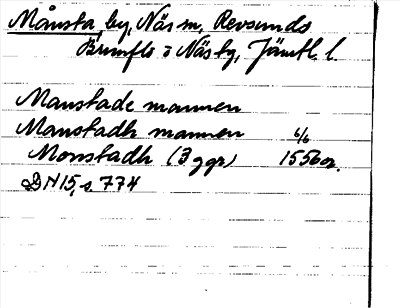 Månsta, by, Näs sn, Revsunds
Brunflo o Näs tg, Jämtl. l.
Manstade mannen
Manstadh mannen 6/6
Monstadh (3 ggr) 1556 or.
DN 15, s. 774